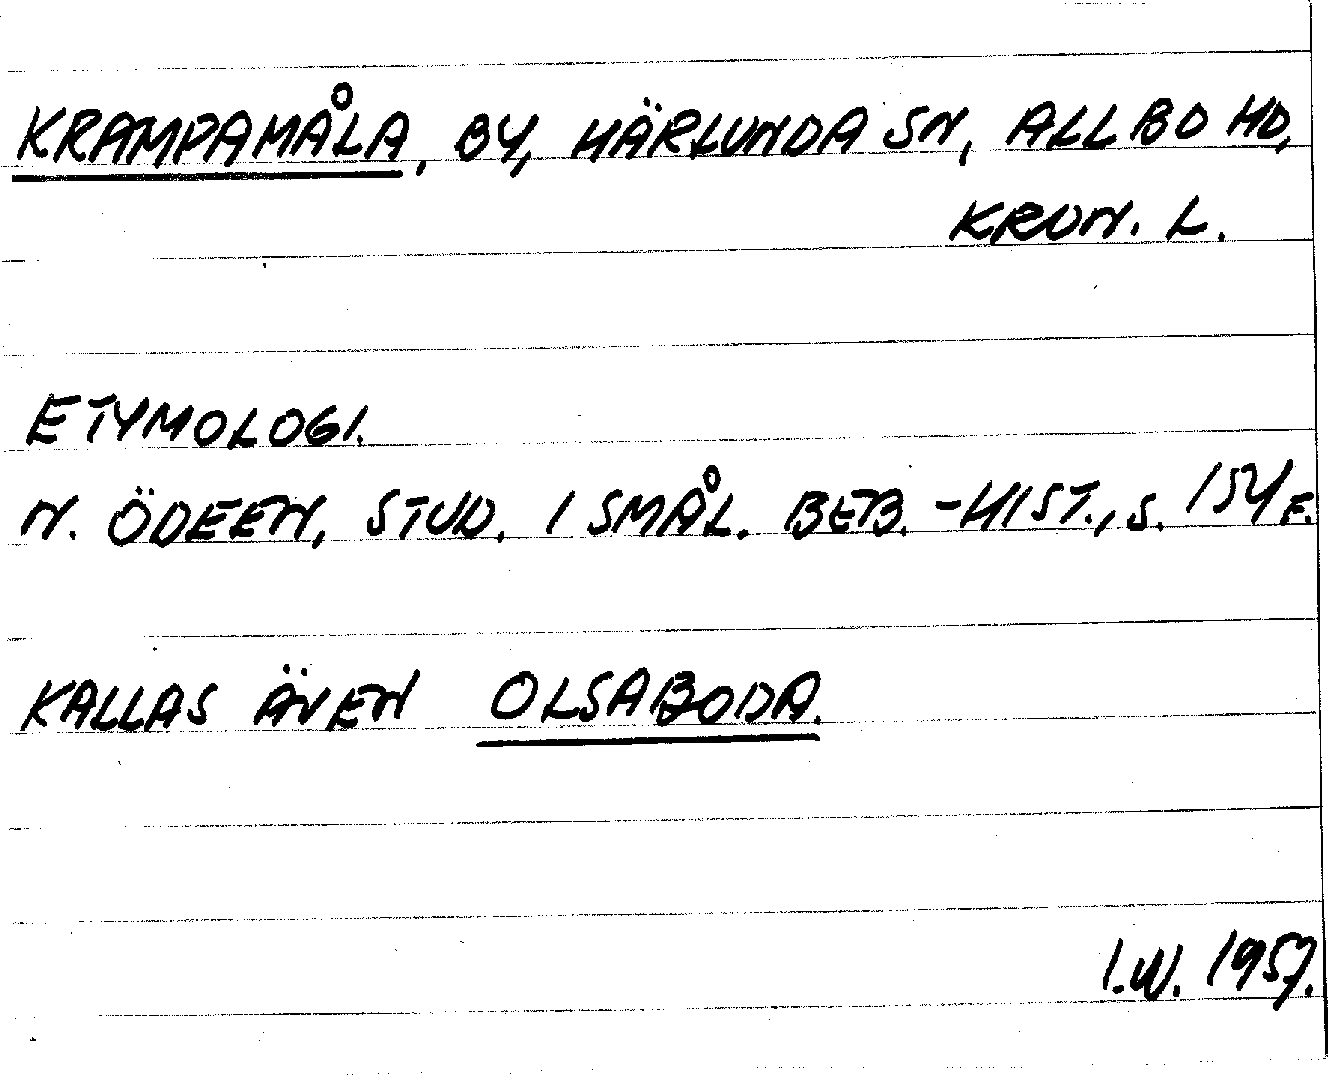 KRAMPAMÅLA, BY, HÄRLUNDA SN, ALLBO HD,
KRON. L.
ETYMOLOGI.
N. ÖDEEN, STUD. I SMÅL. BEB.-HIST., S. 154 F.
KALLAS ÄVEN OLSABODA.
I.W. 1957.